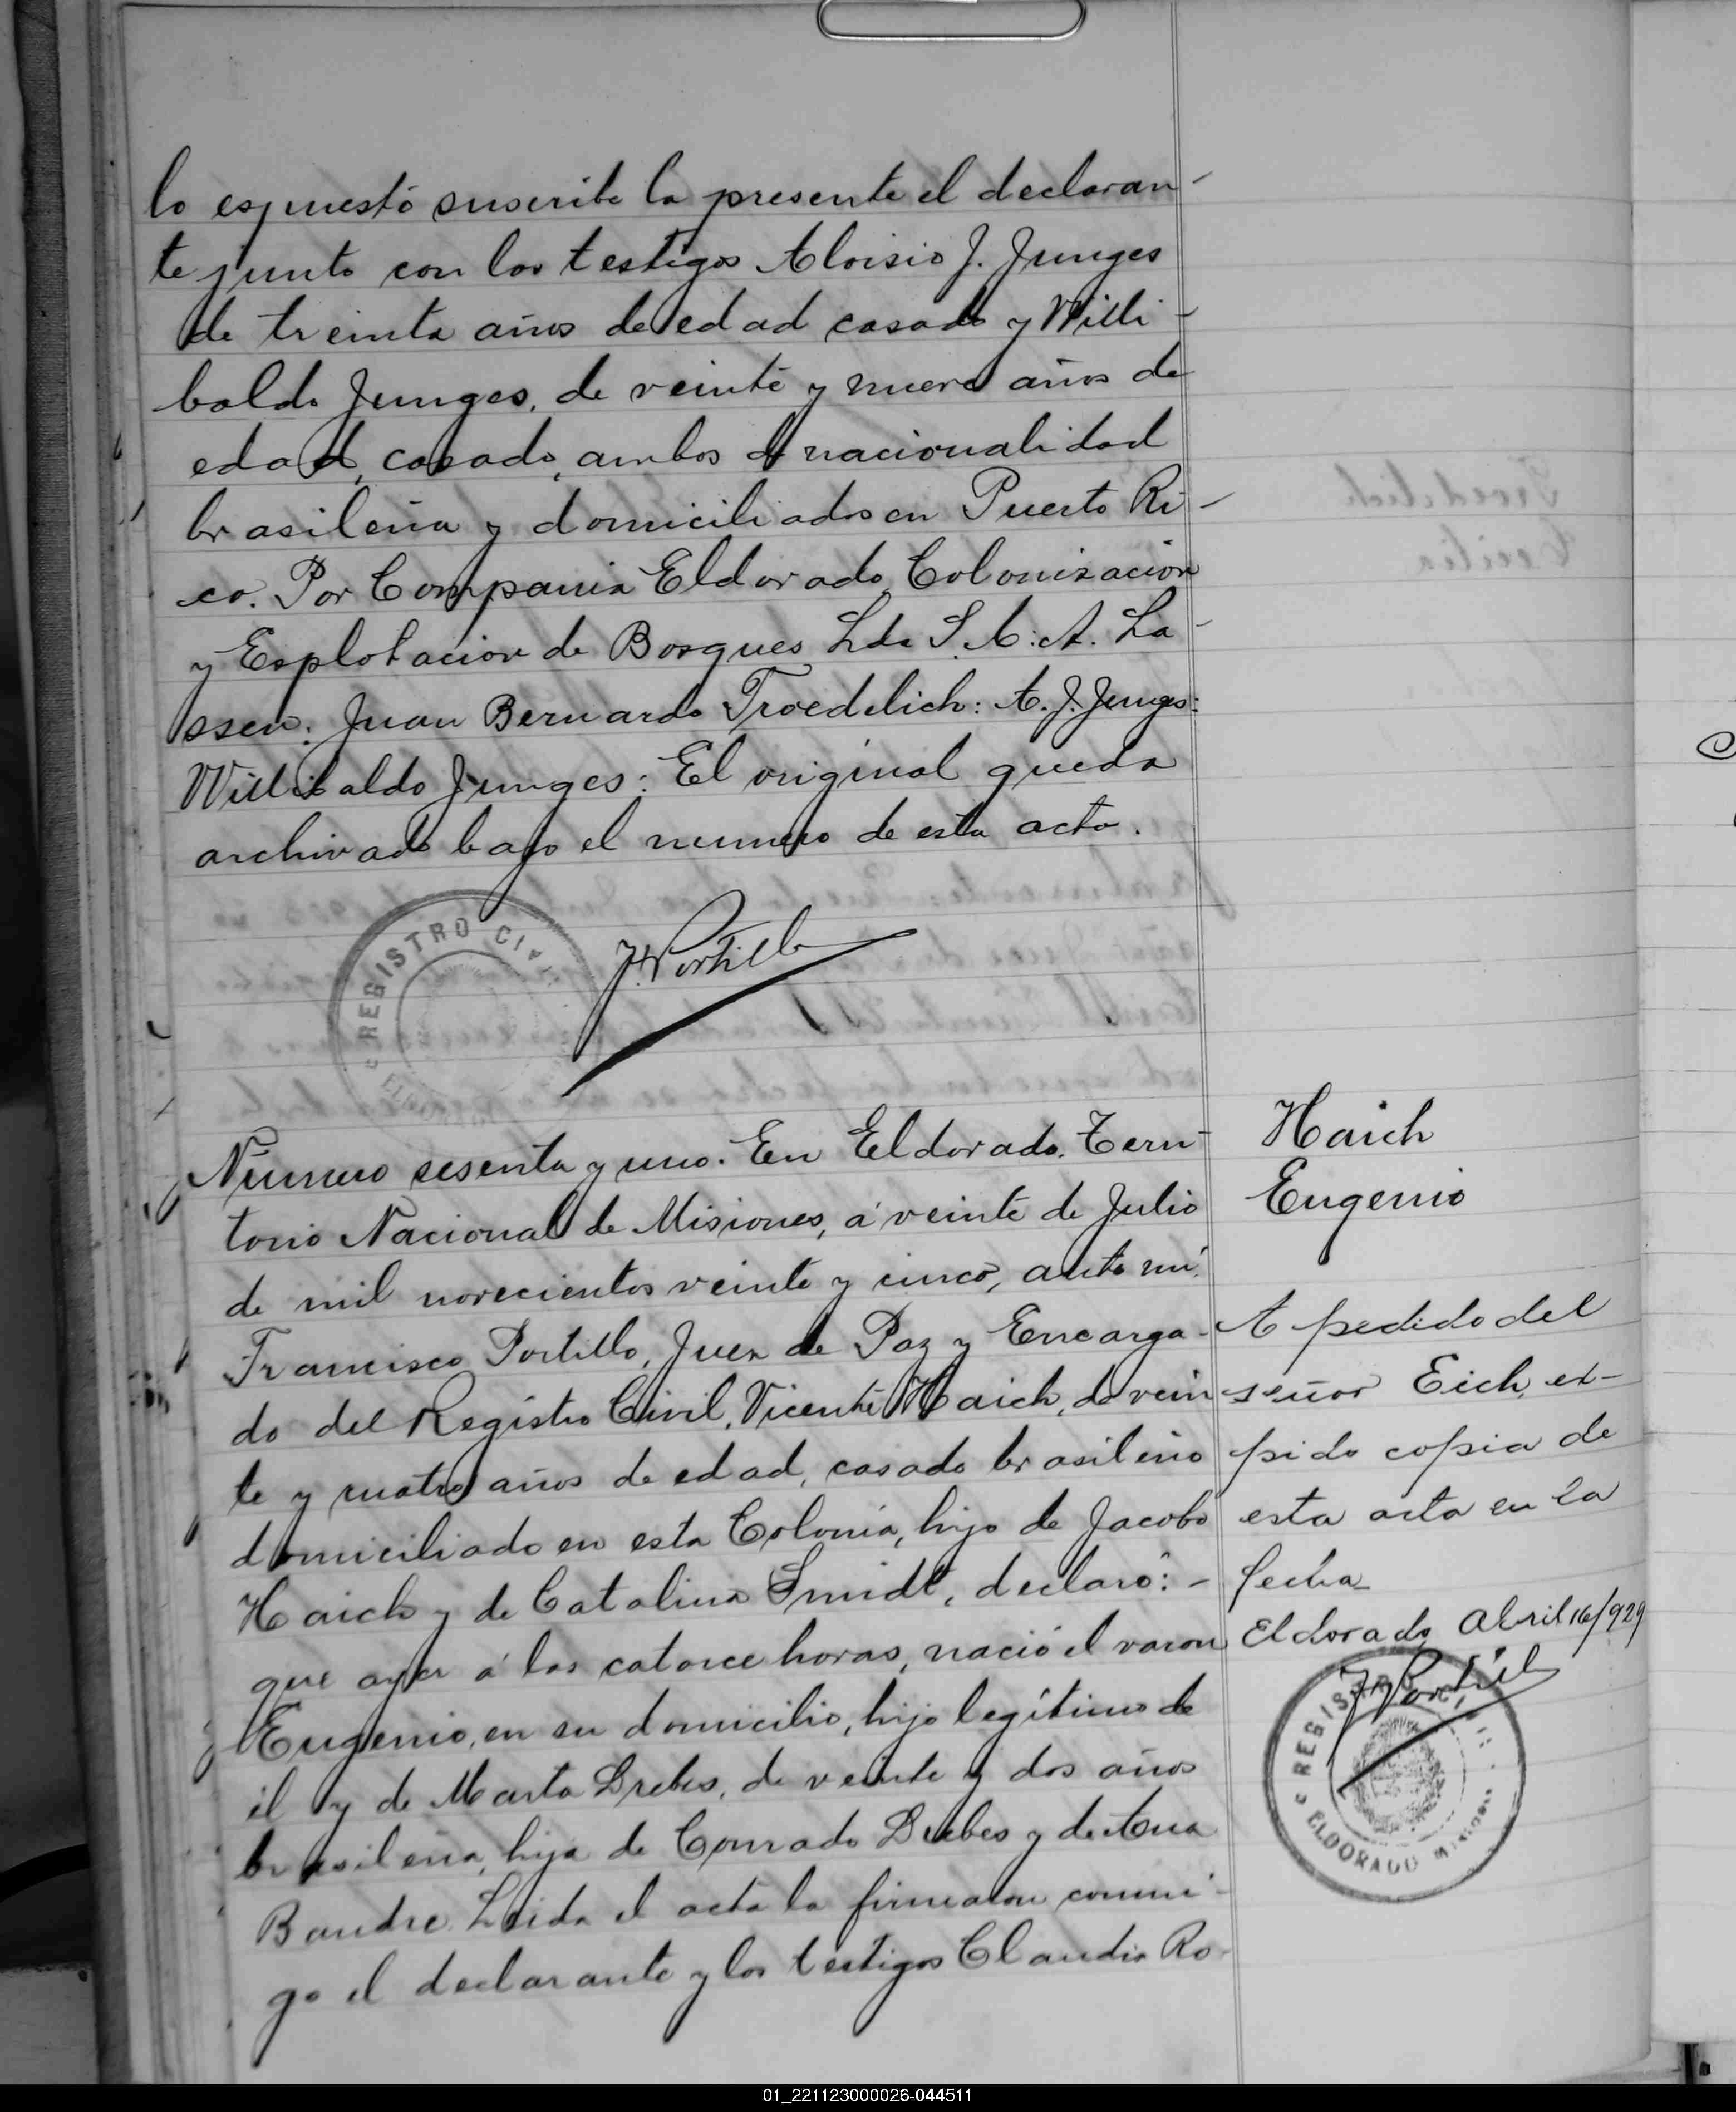 lo espuesto suscribe la presente el declaran-
te junto con los testigos Aloisio J. Junges
de treinta años de edad casado y Willi-
baldo Junges, de veinte y nueve años de
edad, casado, ambos de nacionalidad
brasileña y domiciliados en Puerto Ri-
co. Por Compania Eldorado Colonizacion
y Esplotacion de Bosques Lda S. A: A. La-
ssen: Juan Bernardo Troedelich: A. J. Junges:
Willibaldo Junges: El original queda
archivado bajo el numero de esta acta.
REGISTRO CIVIL
ELDORADO
J. Portillo
Número sesenta y uno. En Eldorado. Terri-
torio Nacional de Misiones, á veinte de Julio
de mil novecientos veinte y cinco, ante mí
Francisco Portillo, Juez de Paz y Encarga-
do del Registro Civil, Vicente Haich, de vein
te y cuatro años de edad, casado brasileño
domiciliado en esta Colonia, hijo de Jacobo
Haich y de Catalina Smidt, declaró: -
que ayer á las catorce horas, nació el varon
Eugenio, en su domicilio, hijo legítimo de
él y de Marta Drebes, de veinte y dos años
brasileña, hija de Conrado Drebes y de Ana
Baudre. Leida el acta la firmaron conmi-
go el declarante y los testigos Claudio Ro-
Haich
Eugenio
A pedido del
señor Eich, ex-
pido copia de
esta acta en la
fecha
Eldorado, Abril 16/929
J. Portillo
REGISTRO CIVIL
ELDORADO MISIONES
01_221123000026-044511